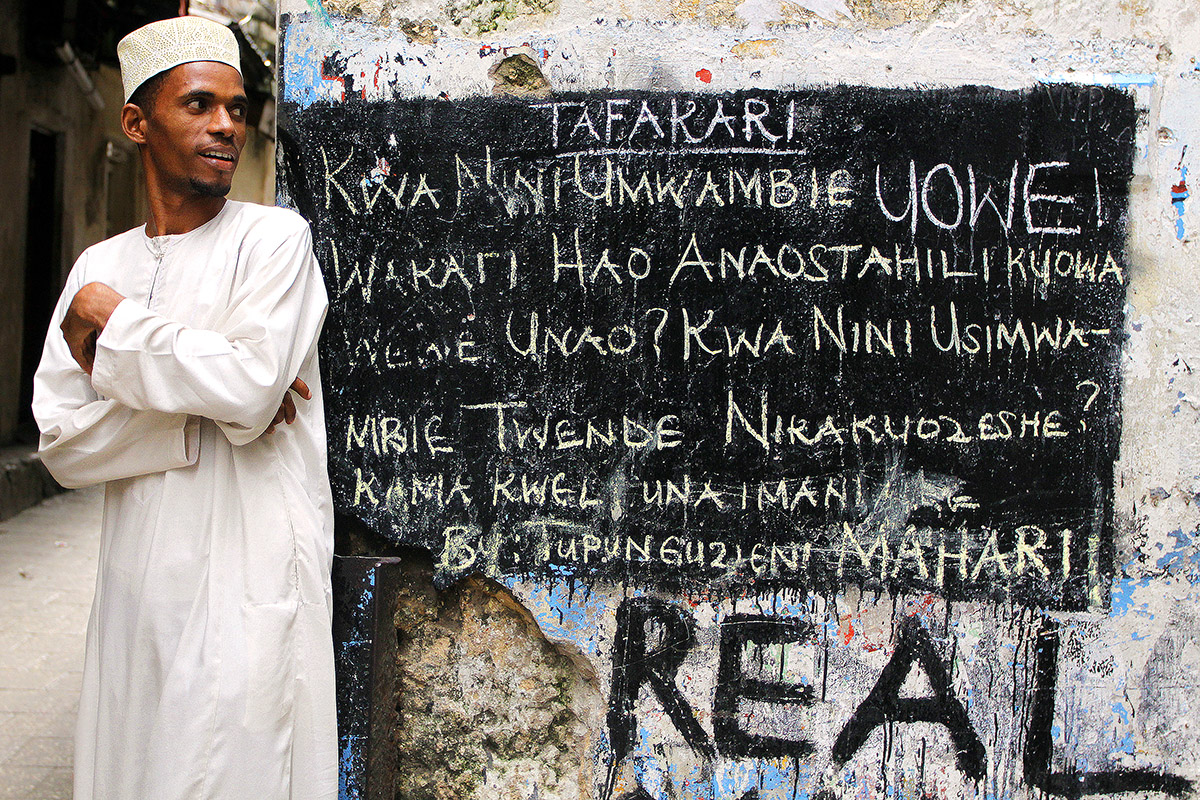 TAFAKARI
KWA NINI UMWAMBIE YOWE!
WAKATI HAO ANAOSTAHILI KUYOWA
WEWE UNAO? KWA NINI USIMWA-
MBIE TWENDE NIKAKUOZESHE?
KAMA KWELI UNA IMANI
BY: TUPUNGUZIENI MAHARI
REAL